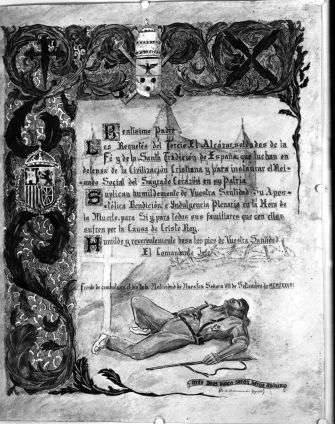 Beatísimo Padre
Los Requetés del Tercio El Alcázar, soldados de la
Fé y de la Santa Tradición de España, que luchan en
defensa de la Civilización Cristiana y para instaurar el Rei-
nado Social del Sagrado Corazón en su Patria.
Suplican humildemente de Vuestra Santidad, Su Apos-
tólica Bendición e Indulgencia Plenaria en la Hora de
la Muerte, para Sí y para todos sus familiares que con ellos
sufren por la Causa de Cristo Rey.
Humilde y reverentemente besa los pies de Vuestra Santidad
El Comandante Jefe
Frente de
Natividad de Nuestra Señora VIII de Septiembre de
ante Dios nunca serás héroe anónimo